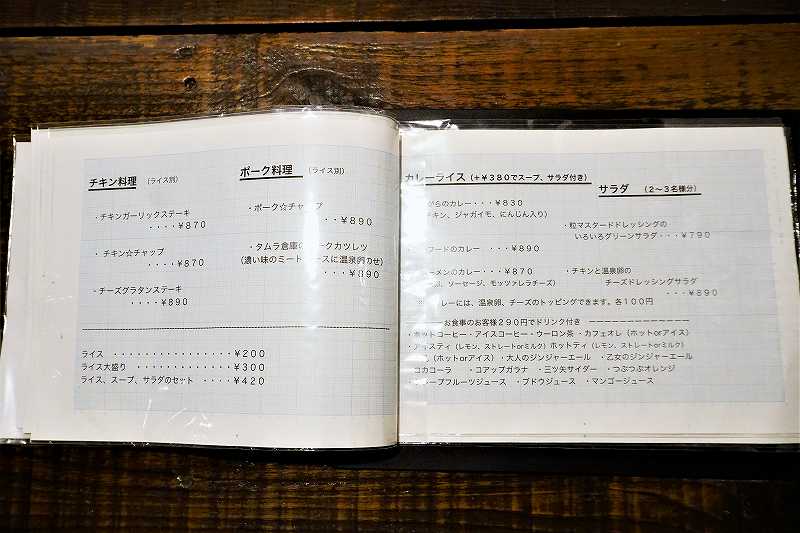 チキン料理 (ライス別)
・チキンガーリックステーキ
・・・・¥870
・チキン☆チャップ
・・・・¥870
・チーズグラタンステーキ
・・・・¥890
ポーク料理 (ライス別)
・ポーク☆チャップ
・・・・¥890
・タムラ倉庫の ークカツレツ
(濃い味のミート ースに温泉卵のせ)
・・・・¥890
ライス ・・・・・・・・・・・・・・¥200
ライス大盛り ・・・・・・・・・・・・¥300
ライス、スープ、サラダのセット ・・・・¥420
カレーライス (+¥380でスープ、サラダ付き)
がらのカレー・・・¥830
チキン、ジャガイモ、にんじん入り)
フードのカレー ・・・¥890
ーメンのカレー・・・¥870
、ソーセージ、モッツァレラチーズ)
※ レーには、温泉卵、チーズのトッピングできます。各100円
サラダ (2〜3名様分)
・粒マスタードドレッシングの
いろいろグリーンサラダ・・・¥790
・チキンと温泉卵の
チーズドレッシングサラダ
・・・¥890
お食事のお客様290円でドリンク付き
・ホットコーヒー・アイスコーヒー・ウーロン茶 ・カフェオレ(ホットorアイス)
・アイスティ(レモン、ストレートorミルク)ホットティ(レモン、ストレートorミルク)
(ホットorアイス)・大人のジンジャーエール ・乙女のジンジャーエール
コカコーラ ・コアップガラナ ・三ツ矢サイダー ・つぶつぶオレンジ
レープフルーツジュース ・ブドウジュース ・マンゴージュース